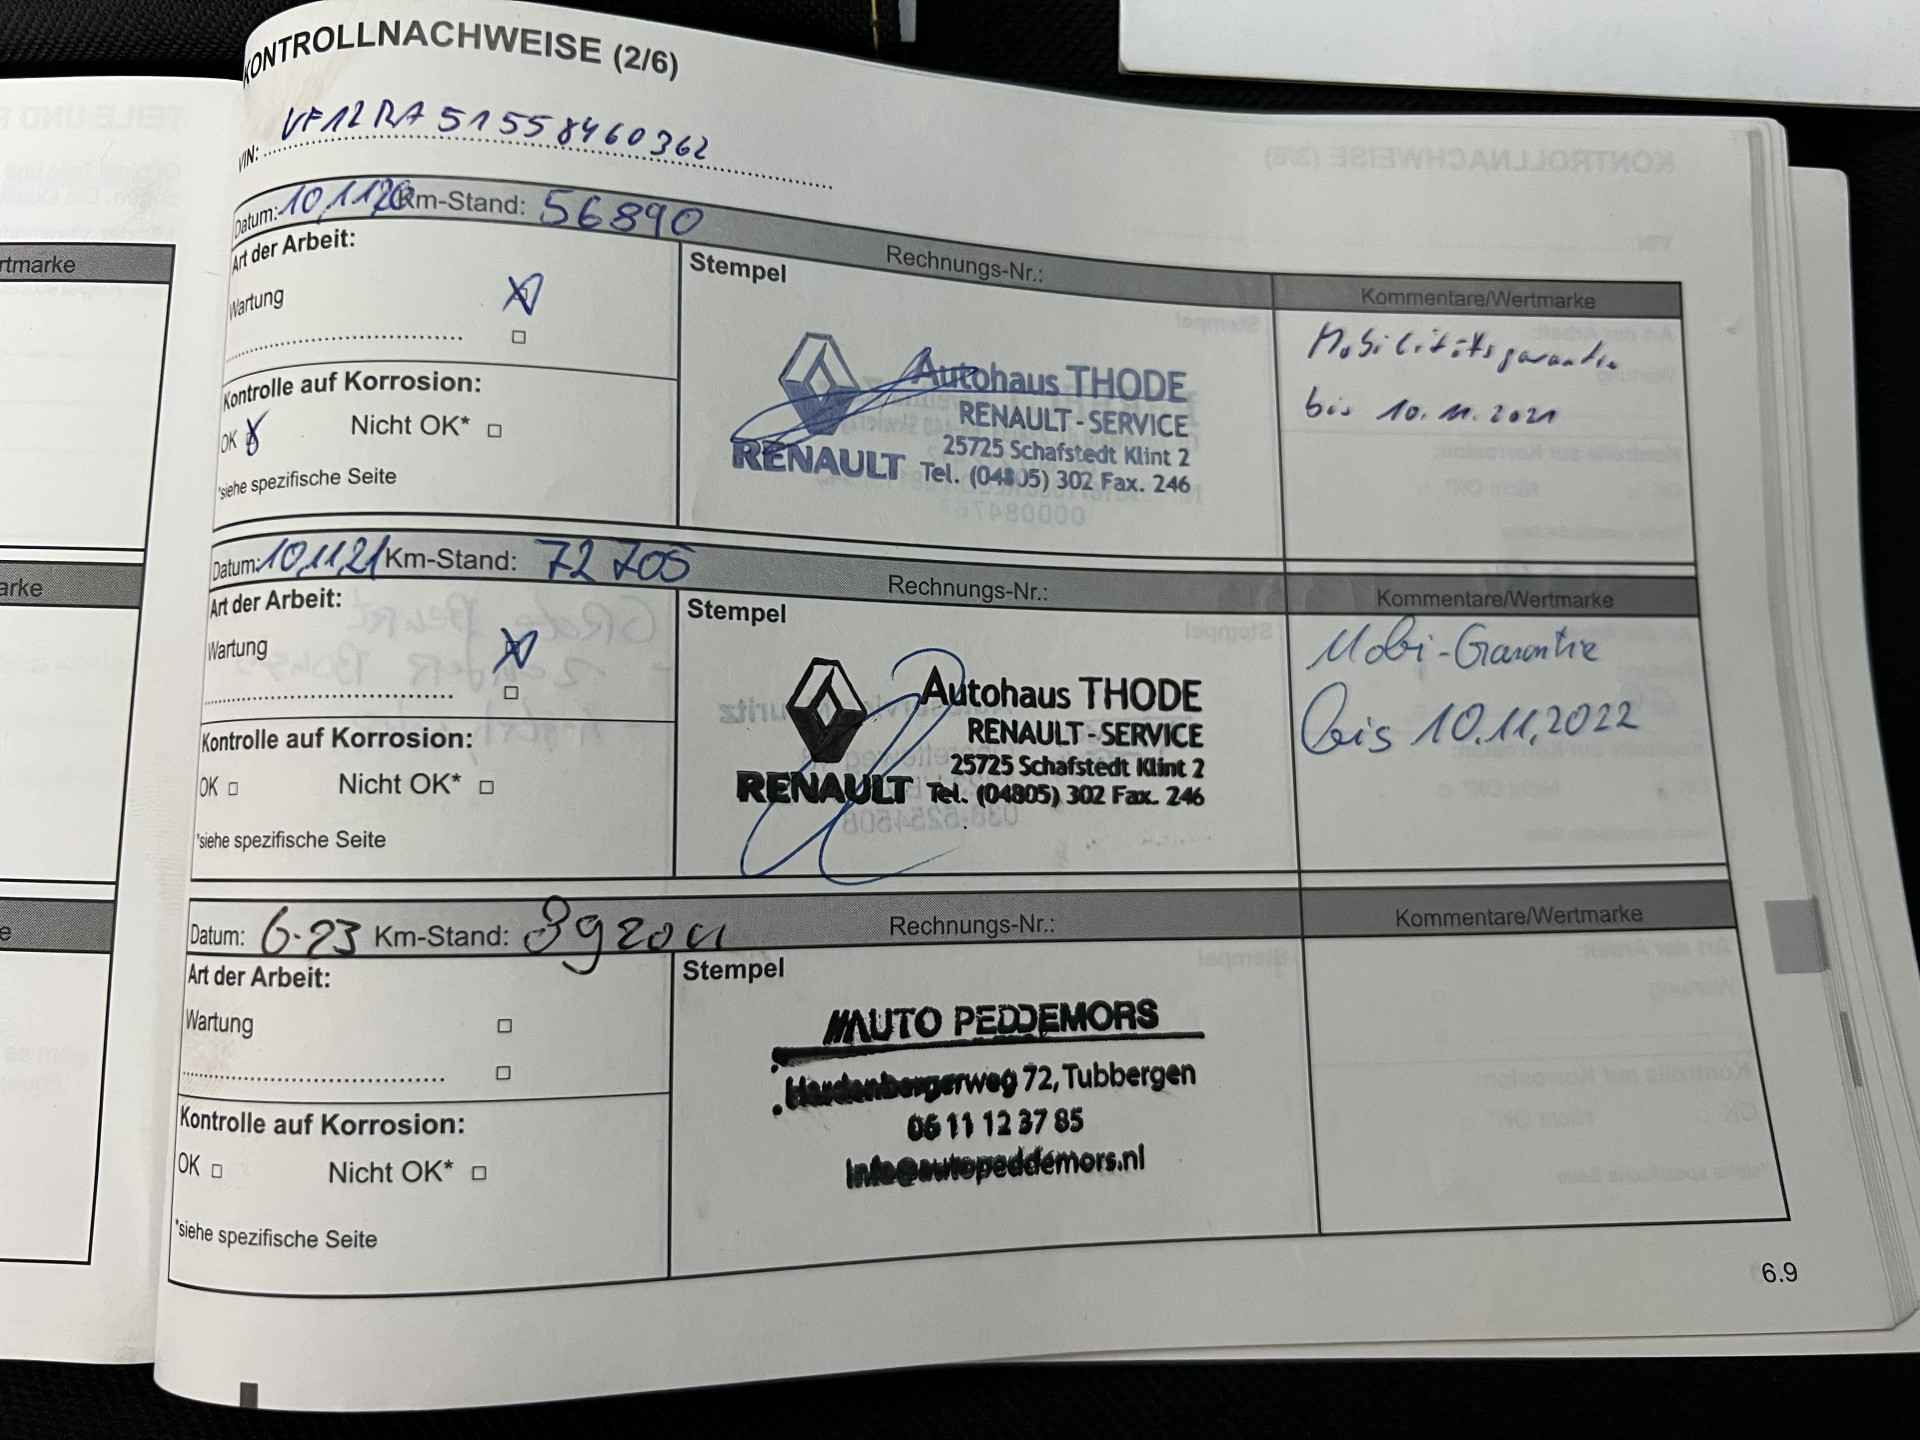 KONTROLLNACHWEISE (2/6)
VIN: VF12RA51558460362
Datum: 10,11,20 Km-Stand: 56890 Rechnungs-Nr.:
Art der Arbeit:
Wartung
Kontrolle auf Korrosion:
OK Nicht OK*
*siehe spezifische Seite
Stempel
Autohaus THODE
RENAULT-SERVICE
25725 Schafstedt Klint 2
RENAULT Tel. (04805) 302 Fax. 246
Kommentare/Wertmarke
Mobilitätsgarantie
bis 10.11.2021
Datum: 10,11,21 Km-Stand: 72705 Rechnungs-Nr.:
Art der Arbeit:
Wartung
Kontrolle auf Korrosion:
OK Nicht OK*
*siehe spezifische Seite
Stempel
Autohaus THODE
RENAULT-SERVICE
25725 Schafstedt Klint 2
RENAULT Tel. (04805) 302 Fax. 246
Kommentare/Wertmarke
Mobi-Garantie
bis 10.11.2022
Datum: 6-23 Km-Stand: Rechnungs-Nr.:
Art der Arbeit:
Wartung
Kontrolle auf Korrosion:
OK Nicht OK*
*siehe spezifische Seite
Stempel
AUTO PEDDEMORS
Hardenbergerweg 72, Tubbergen
06 11 12 37 85
Info@autopeddemors.nl
Kommentare/Wertmarke
6.9
rtmarke
arke
e